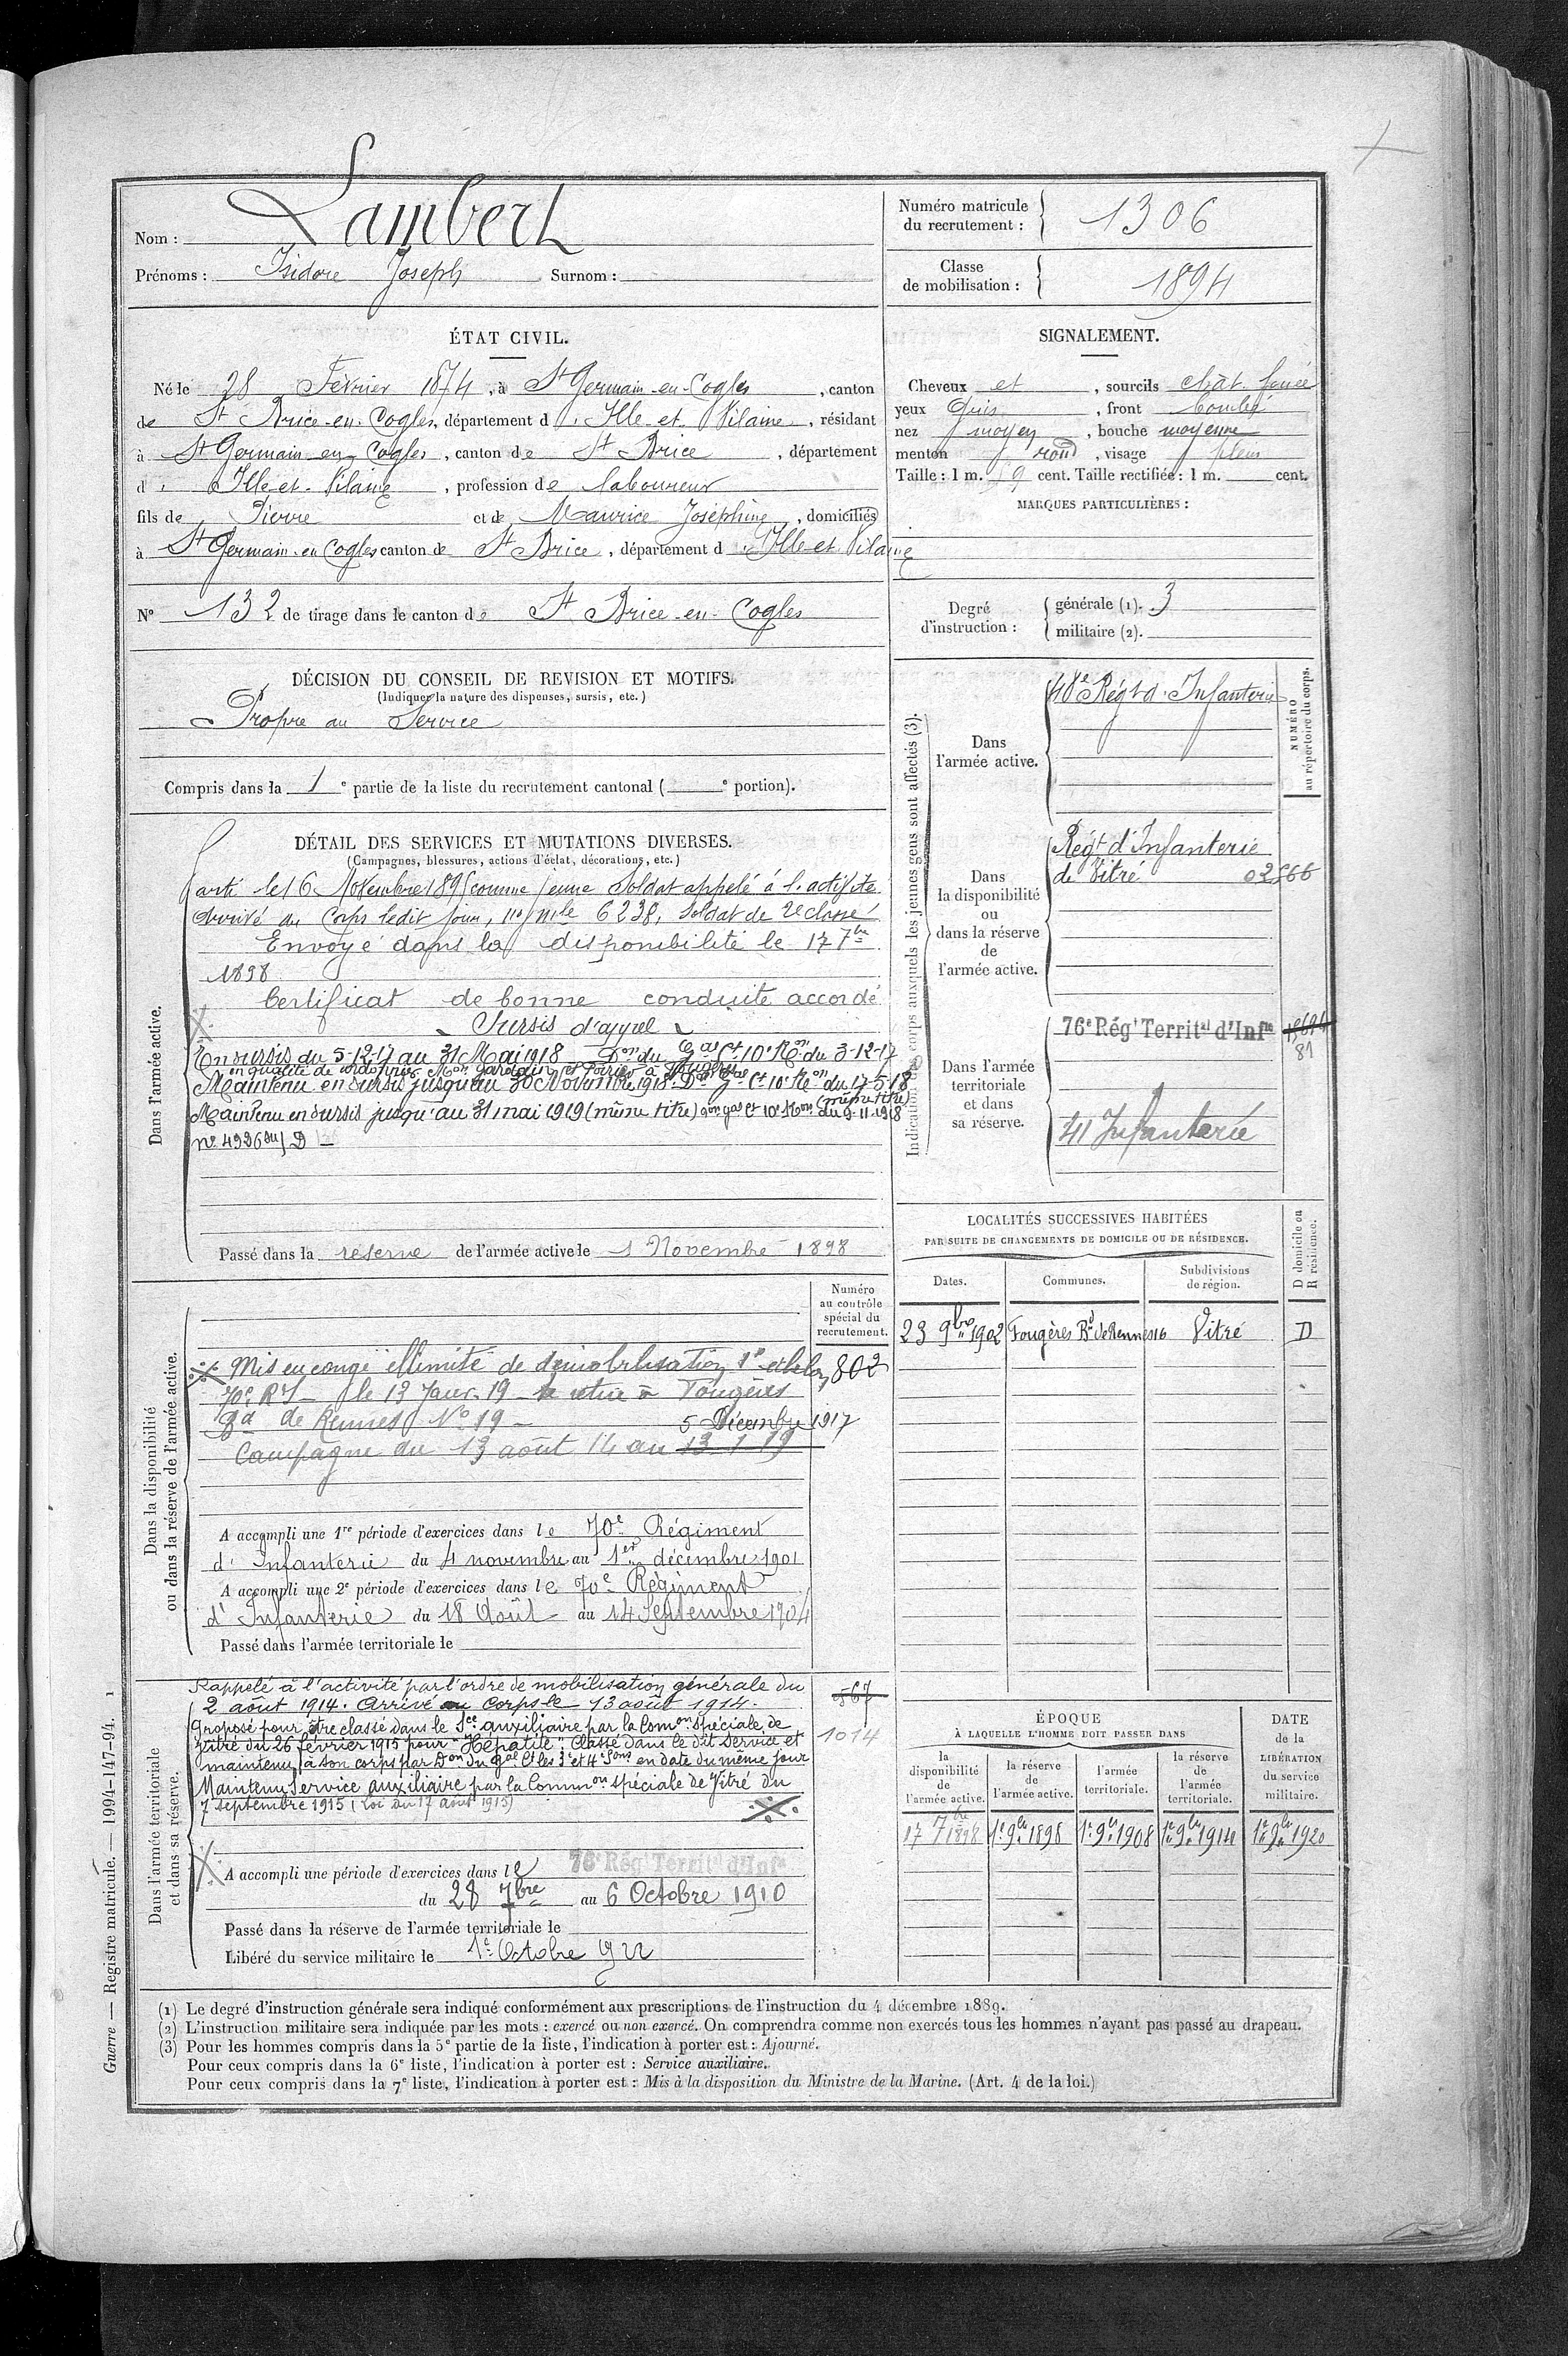 Nom : Lambert
Prénoms : Isidore Joseph Surnom :
Numéro matricule
du recrutement : 1306
Classe
de mobilisation : 1894
ÉTAT CIVIL.
Né le 28 Février 1874, à St Germain-en-Cogles, canton
de St Brice-en-Cogles, département d'Ille et Vilaine, résidant
à St Germain-en-Cogles, canton de St Brice, département
d'Ille-et-Vilaine, profession de laboureur
fils de Pierre et de Maurice Joséphine, domiciliés
à St Germain-en Cogles canton de St Brice, département d'Ille-et Vilaine
No 132 de tirage dans le canton de St Brice-en-Cogles
SIGNALEMENT.
Cheveux et, sourcils chât. foncé
yeux Gris, front bombé
nez moyen, bouche moyenne
menton rond, visage plein
Taille : 1 m. 59 cent. Taille rectifiée : 1 m. cent.
MARQUES PARTICULIÈRES :
Degré
d'instruction :
générale (1). 3
militaire (2).
DÉCISION DU CONSEIL DE REVISION ET MOTIFS.
(Indiquer la nature des dispenses, sursis, etc.)
Propre au Service
Compris dans la 1e partie de la liste du recrutement cantonal ( e portion).
DÉTAIL DES SERVICES ET MUTATIONS DIVERSES.
(Campagnes, blessures, actions d'éclat, décorations, etc.)
Dans l'armée active.
Parti le 16 Novembre 1895 comme jeune Soldat appelé à l'activité
Arrivé au Corps ledit jour, no mle 6238, soldat de 2e classe
Envoyé dans la disponibilité le 17 7bre
1898
Certificat de bonne conduite accordé
Sursis d'appel
En sursis du 5-12-17 au 31 Mai 1918 Don du Gal Ct 10e Ron du 3-12-17
en qualité de cordonnier Mon Jardain et Poirier à Fougères
Maintenu en sursis jusqu'au 30 Novembre 1918. Don Gal Ct 10e Ron du 17-5-18
(même titre)
Maintenu en sursis jusqu'au 31 mai 1919 (même titre) Don Gal Ct 10e Ron du 9-11-1918
no 4936 D
Passé dans la réserve de l'armée active le 1 Novembre 1898
Indication des corps auxquels les jeunes gens sont affectés (3).
NUMÉRO
au répertoire du corps.
Dans
l'armée active.
48e Régt d'Infanterie
Dans
la disponibilité
ou
dans la réserve
de
l'armée active.
Régt d'Infanterie
de Vitré 02566
Dans l'armée
territoriale
et dans
sa réserve.
76e Régt Territal d'Infie
81
41 Infanterie
LOCALITÉS SUCCESSIVES HABITÉES
PAR SUITE DE CHANGEMENTS DE DOMICILE OU DE RÉSIDENCE.
D domicile ou
R résidence.
Dates. Communes. Subdivisions
de région.
23 9bre 1902 Fougères Bd de Rennes 16 Vitré D
Dans la disponibilité
ou dans la réserve de l'armée active.
Numéro
au contrôle
spécial du
recrutement.
Mis en congé illimité de démobilisation 1e echelon 802
70e RI le 13 Janv. 19 se retire à Fougères
Bd de Rennes No 19
5 Décembre 1917
Campagne du 13 août 14 au 13 1 19
A accompli une 1re période d'exercices dans le 70e Régiment
d'Infanterie du 4 novembre au 1er décembre 1901
A accompli une 2e période d'exercices dans le 70e Régiment
d'Infanterie du 18 Août au 14 Septembre 1904
Passé dans l'armée territoriale le
Dans l'armée territoriale
et dans sa réserve.
Rappelé à l'activité par l'ordre de mobilisation générale du
2 août 1914. Arrivé au corps le 13 août 1914.
567
1014
Proposé pour être classé dans le Sce auxiliaire par la Comon spéciale de
Vitré du 26 février 1915 pour "Hépatite". Classé dans le dit service et
maintenu à son corps par Don du Gal Ct les 3e et 4e Sons en date du même jour
Maintenu Service auxiliaire par la Common spéciale de Vitré du
7 septembre 1915 (Loi du 17 août 1915)
A accompli une période d'exercices dans le 76e Régt Territal d'Infie
du 28 7bre au 6 Octobre 1910
Passé dans la réserve de l'armée territoriale le
Libéré du service militaire le 1e Octobre 1922
ÉPOQUE
À LAQUELLE L'HOMME DOIT PASSER DANS
la
disponibilité
de
l'armée active.
la réserve
de
l'armée active.
l'armée
territoriale.
la réserve
de
l'armée
territoriale.
DATE
de la
LIBÉRATION
du service
militaire.
17 7bre 1898 1e 9bre 1898 1e 9bre 1908 1e 9bre 1914 1e 9bre 1920
(1) Le degré d'instruction générale sera indiqué conformément aux prescriptions de l'instruction du 4 décembre 1889.
(2) L'instruction militaire sera indiquée par les mots : exercé ou non exercé. On comprendra comme non exercés tous les hommes n'ayant pas passé au drapeau.
(3) Pour les hommes compris dans la 5e partie de la liste, l'indication à porter est : Ajourné.
Pour ceux compris dans la 6e liste, l'indication à porter est : Service auxiliaire.
Pour ceux compris dans la 7e liste, l'indication à porter est : Mis à la disposition du Ministre de la Marine. (Art. 4 de la loi.)
Guerre — Registre matricule. — 1994-147-94. 1